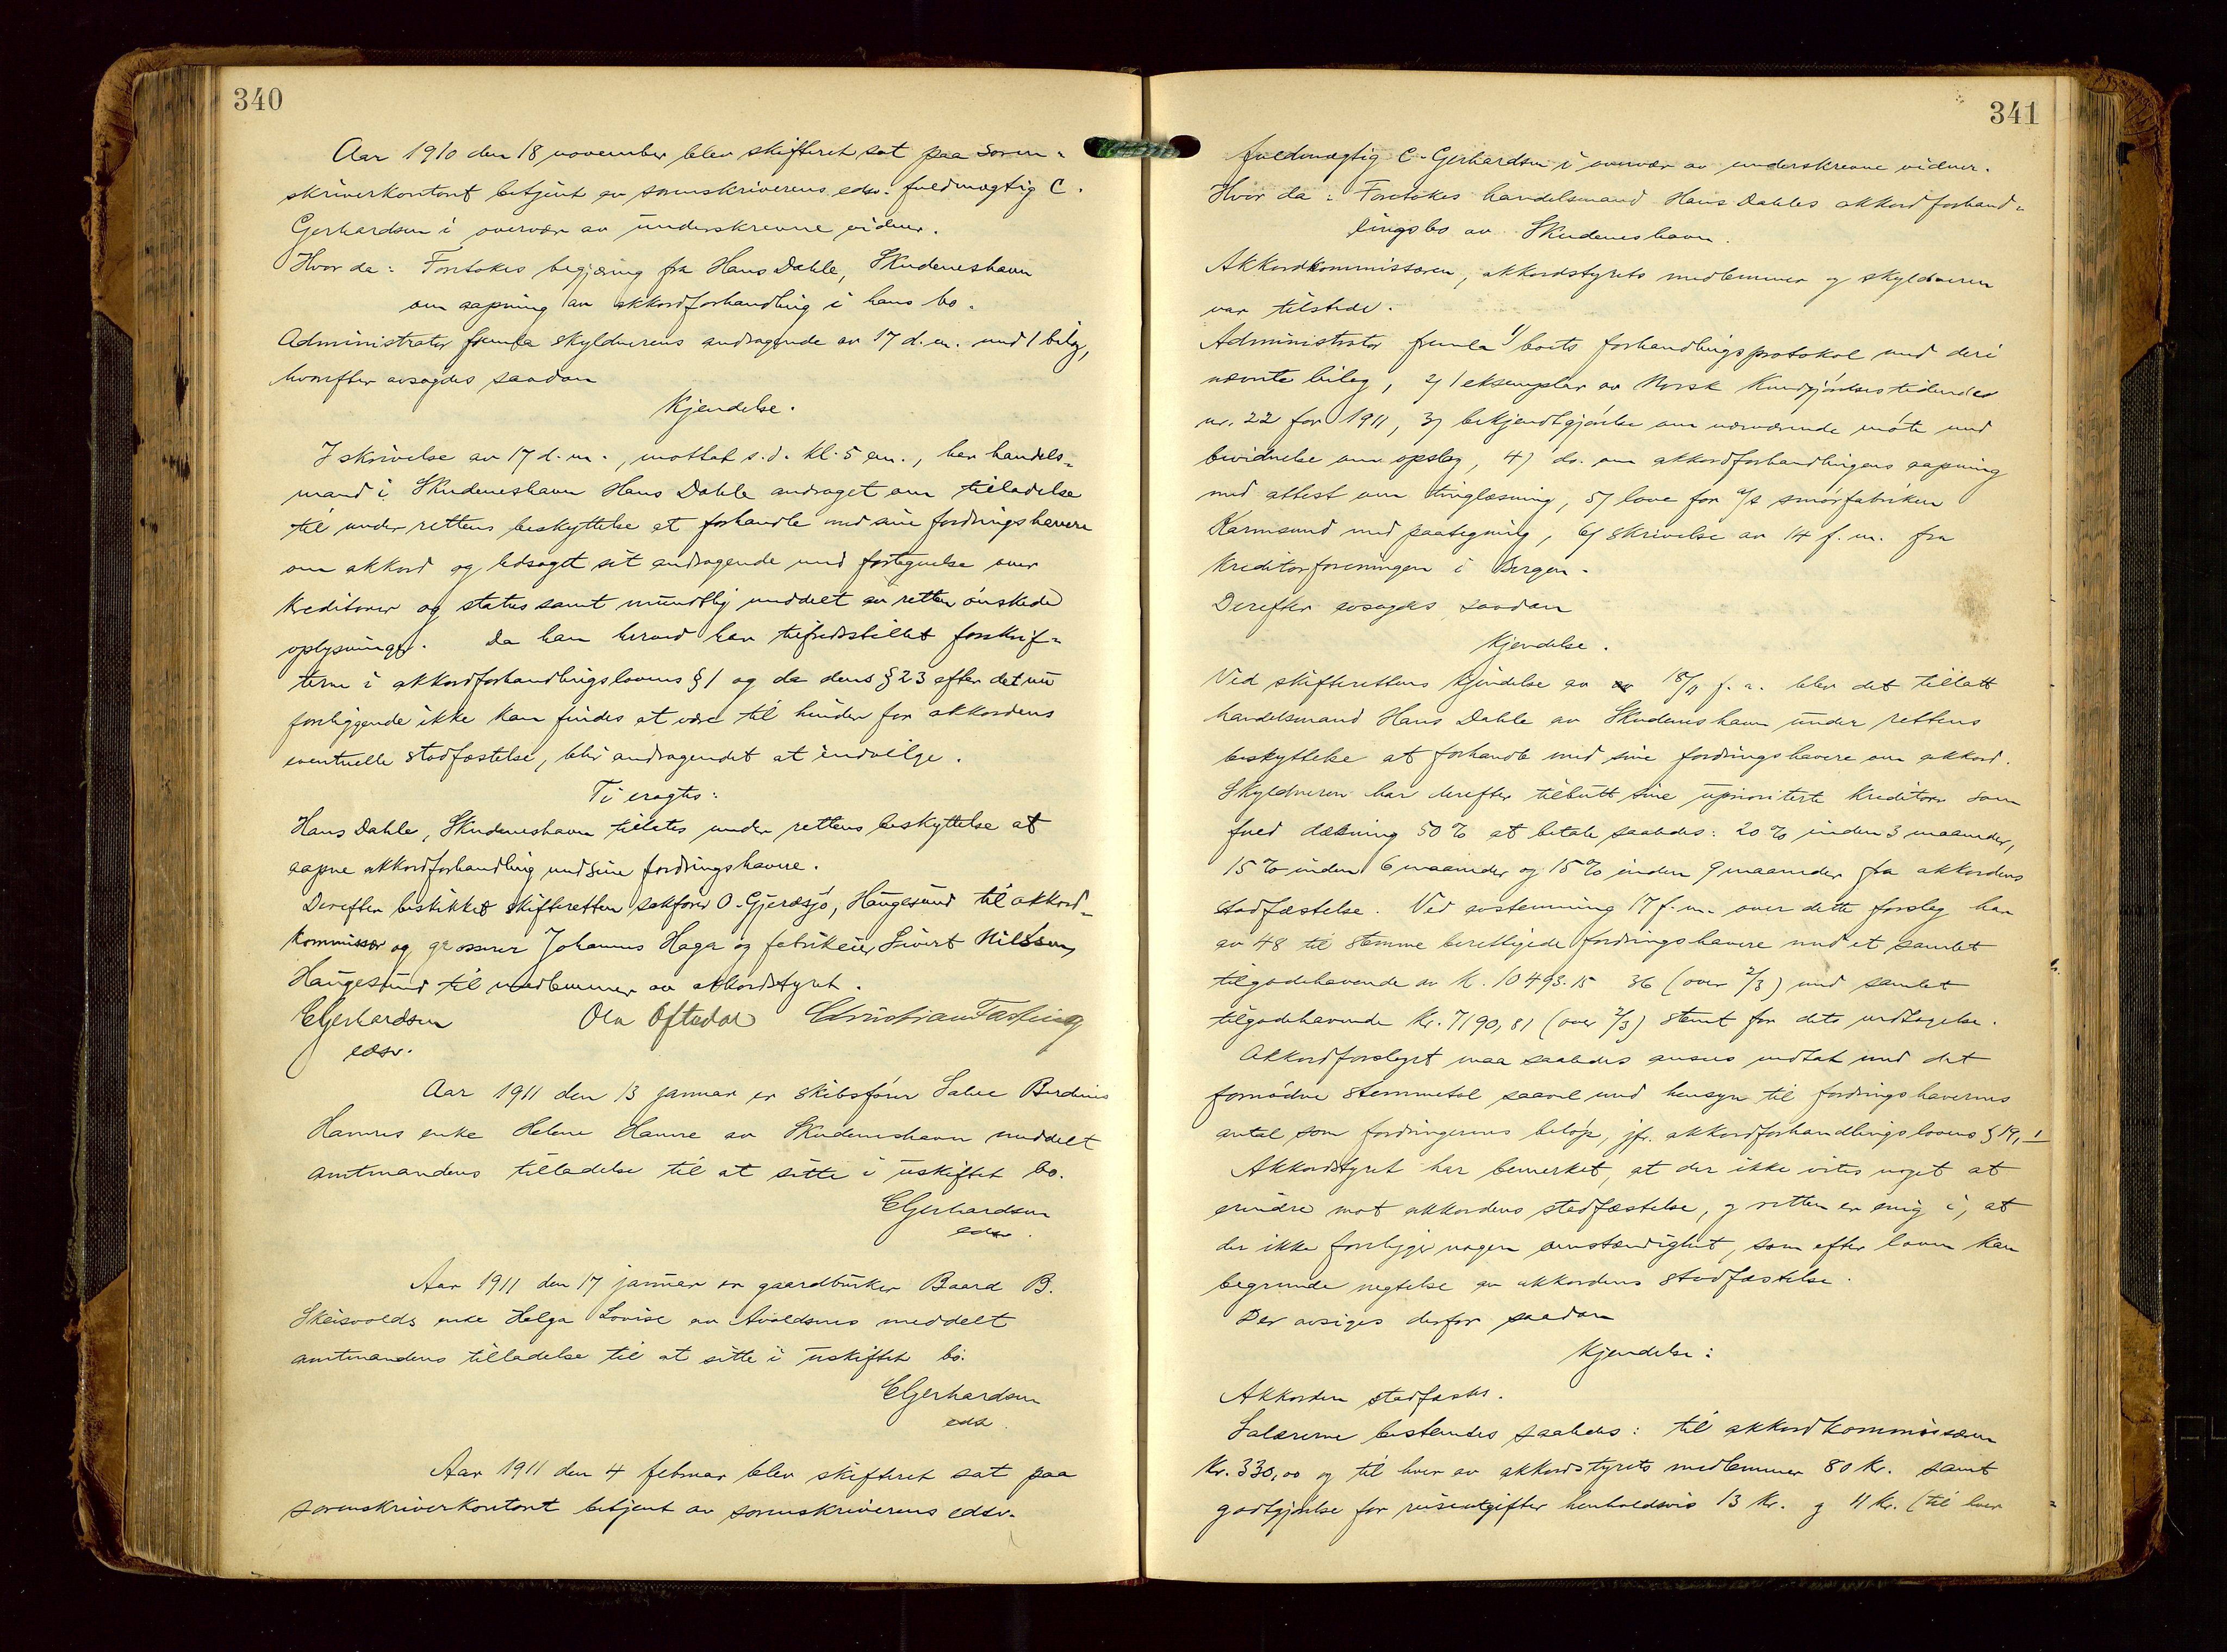 340
Aar 1910 den 18 november blev skifteret sat paa soren-
skriverkontoret betjent av sorenskriverens edsv. fuldmægtig C.
Gerhardsen i overvær av underskrevne vidner.
Hvor da: Foretokes begjæring fra Hans Dahle, Skudeneshavn
om aapning av akkordforhandling i hans bo.
Administrator fremla skyldnerens andragende av 17 d.m. med 1 bilag,
hvorefter avsagdes saadan
Kjendelse.
I skrivelse av 17 d.m., mottat s.d. kl. 5 em., har handels-
mand i Skudeneshavn Hans Dahle andraget om tilladelse
til under rettens beskyttelse at forhandle med sine fordringshavere
om akkord og ledsaget sit andragende med fortegnelse over
kreditorer og status samt mundtlig meddelt av retten ønskede
oplysninger. Da han herved har tilfredsstillet forskrif-
terne i akkordforhandlingslovens § 1 og da dens § 23 efter det nu
foreliggende ikke kan findes at være til hinder for akkordens
eventuelle stadfæstelse, blir andragendet at indvilge.
Ti eragtes:
Hans Dahle, Skudeneshavn tillates under rettens beskyttelse at
aapne akkordforhandling med sine fordringshavere.
Derefter beskikket skifteretten sakfører O. Gjerøsjø, Haugesund til akkord-
kommissær og grosserer Johannes Haga og fabrikeier Sivert Nilssen,
Haugesund til medlemmer av akkordstyret.
CGerhardsen Ola Oftedal Christian Fasting
edsv.
Aar 1911 den 13 januar er skibsfører Salve Berdines
Hamres enke Helene Hamre av Skudeneshavn meddelt
amtmandens tilladelse til at sitte i uskiftet bo.
CGerhardsen
edsv.
Aar 1911 den 17 januar er gaardbruker Baard B.
Skeisvolds enke Helga Lovise av Avaldsnes meddelt
amtmandens tilladelse til at sitte i uskiftet bo.
CGerhardsen
edsv.
Aar 1911 den 4 februar blev skifteret sat paa
sorenskriverkontoret betjent av sorenskriverens edsv.
341
fuldmægtig C. Gerhardsen i overvær av underskrevne vidner.
Hvor da: Foretokes handelsmand Hans Dahles akkordforhand-
lingsbo av Skudeneshavn.
Akkordkommissæren, akkordstyrets medlemmer og skyldneren
var tilstede.
Administrator fremla 1/ boets forhandlingsprotokol med deri
nævnte bilag, 2/ 1 eksemplar av Norsk Kundgjørelsestidende
nr. 22 for 1911, 3/ bekjendtgjørelse om nærværende møte med
bevidnelse om opslag, 4/ do. om akkordforhandlingens aapning
med attest om tinglæsning, 5/ love for a/s smørfabriken
Karmsund med paategning, 6/ skrivelse av 14 f.m. fra
Kreditorforeningen i Bergen.
Derefter avsagdes saadan
Kjendelse.
Ved skifterettens kjendelse av 18/11 f.a. blev det tillatt
handelsmand Hans Dahle av Skudeneshavn under rettens
beskyttelse at forhandle med sine fordringshavere om akkord.
Skyldneren har derefter tilbutt sine upriorriterte kreditorer som
fuld dækning 50 % at betale saaledes: 20 % inden 3 maaneder,
15 % inden 6 maaneder og 15 % inden 9 maaneder fra akkordens
stadfæstelse. Ved avstemning 17 f.m. over dette forslag har
av 48 til stemme berettigede fordringshavere med et samlet
tilgodehavende av kr. 10493.15 36 (over 2/3) med samlet
tilgodehavende kr. 7190,81 (over 2/3) stemt for dets vedtagelse.
Akkordforslaget maa saaledes ansees vedtat med det
fornødne stemmetal saavel med hensyn til fordringshavernes
antal som fordringernes beløp, jfr. akkordforhandlingslovens § 19, 1
Akkordstyret har bemerket, at der ikke vites noget at
erindre mot akkordens stadfæstelse, og retten er enig i, at
der ikke foreligger nogen omstændighet, som efter loven kan
begrunde negtelse av akkordens stadfæstelse.
Der avsiges derfor saadan
Kjendelse:
Akkorden stadfæstes.
Salærerne bestemdes saaledes: til akkordkommissæren
kr. 330,00 og til hver av akkordstyrets medlemmer 80 kr. samt
godtgjørelse for reiseutgifter henholdsvis 13 kr. og 11 kr. (til hver